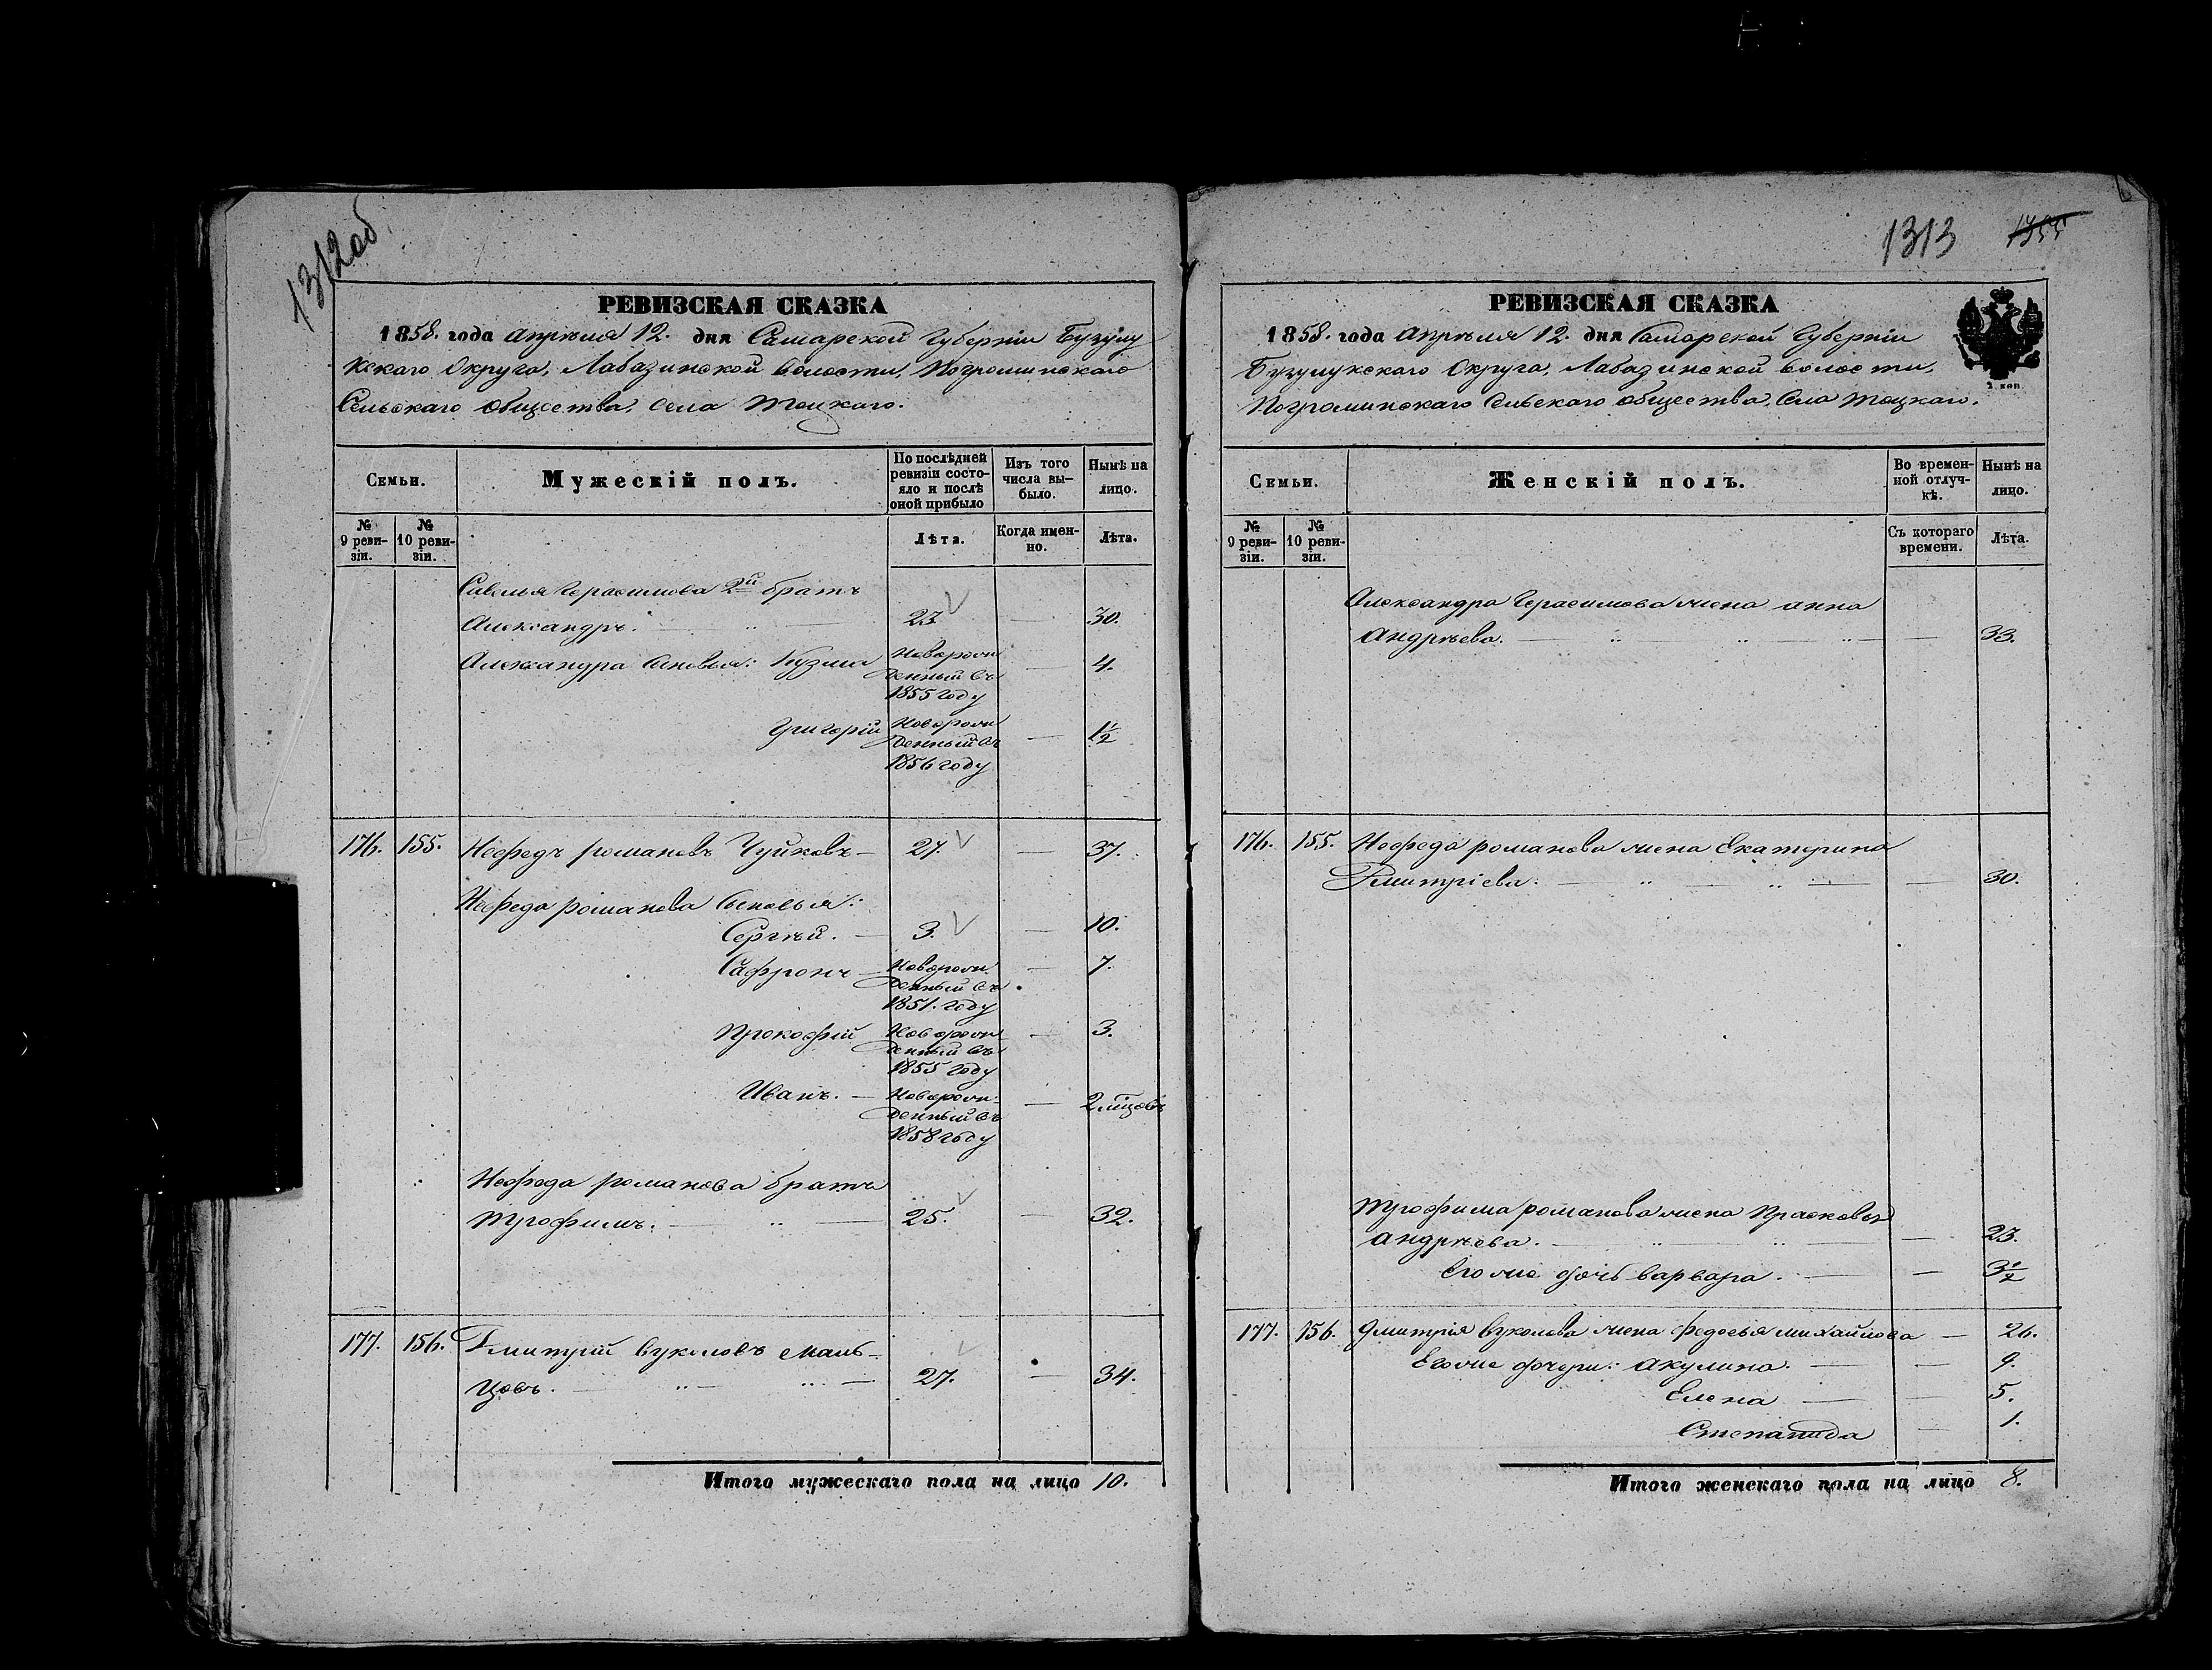 1312об
РЕВИЗСКАЯ СКАЗКА
1858. года Апрѣля 12. дня Самарской Губерніи Бузулу
кскаго Округа, Лабазинской волости, Погроминскаго
Сельскаго общества, села Тоцкаго.
Семьи.
Мужескій полъ.
По послѣдней ревизіи состо-
яло и послѣ оной прибыло
Изъ того числа вы-
было.
Нынѣ на лицо.
№ 9 реви-
зіи.
№ 10 реви-
зіи.
Лѣта.
Когда имен-
но.
Лѣта.
Савелья Герасимова 2й братъ
Александръ. 23 — 30.
Александра сыновья: Кузма Новорож
денный въ — 4.
1855 году
Григорій Новорож
денный въ — 1½
1856 году
176. 155. Нефедъ романовъ Чуйковъ — 27. — 37.
Нефеда романова сыновья:
Сергѣй. — 3. — 10.
Сафронъ — Новорож — 7.
денный въ
1851. году
Прокофій Новорож — 3.
денный въ
1855 году
Иванъ. — Новорож-
денный въ — 2 мѣцовъ
1858 году
Нефеда романова братъ
Трофимъ. — 25. — 32.
177. 156. Дмитрій Вуколовъ Маль-
цовъ. — 27. — 34.
Итого мужескаго пола на лицо 10.
1313
1355
РЕВИЗСКАЯ СКАЗКА
1858. года Апрѣля 12. дня Самарской Губерніи
Бузулукскаго Округа, Лабазинской волости,
Погроминскаго Сельскаго общества, Села Тоцкаго.
2. коп.
Семьи.
Женскій полъ.
Во времен-
ной отлуч-
кѣ.
Нынѣ на лицо.
№ 9 реви-
зіи.
№ 10 реви-
зіи.
Съ котораго времени.
Лѣта.
Александра Герасимова жена анна
Андрѣева. — 33.
176. 155. Нефеда романова жена Екатерина
Дмитріева. — 30.
Трофима романова жена Прасковья
андрѣева. — 23.
Его же дочь варвара. — 3½
177. 156. Дмитрія Вуколова жена Федосья михайлова — 26.
Его же дочери: Акулина. — 9.
Елена — 5.
Степанида — 1.
Итого женскаго пола на лицо 8.